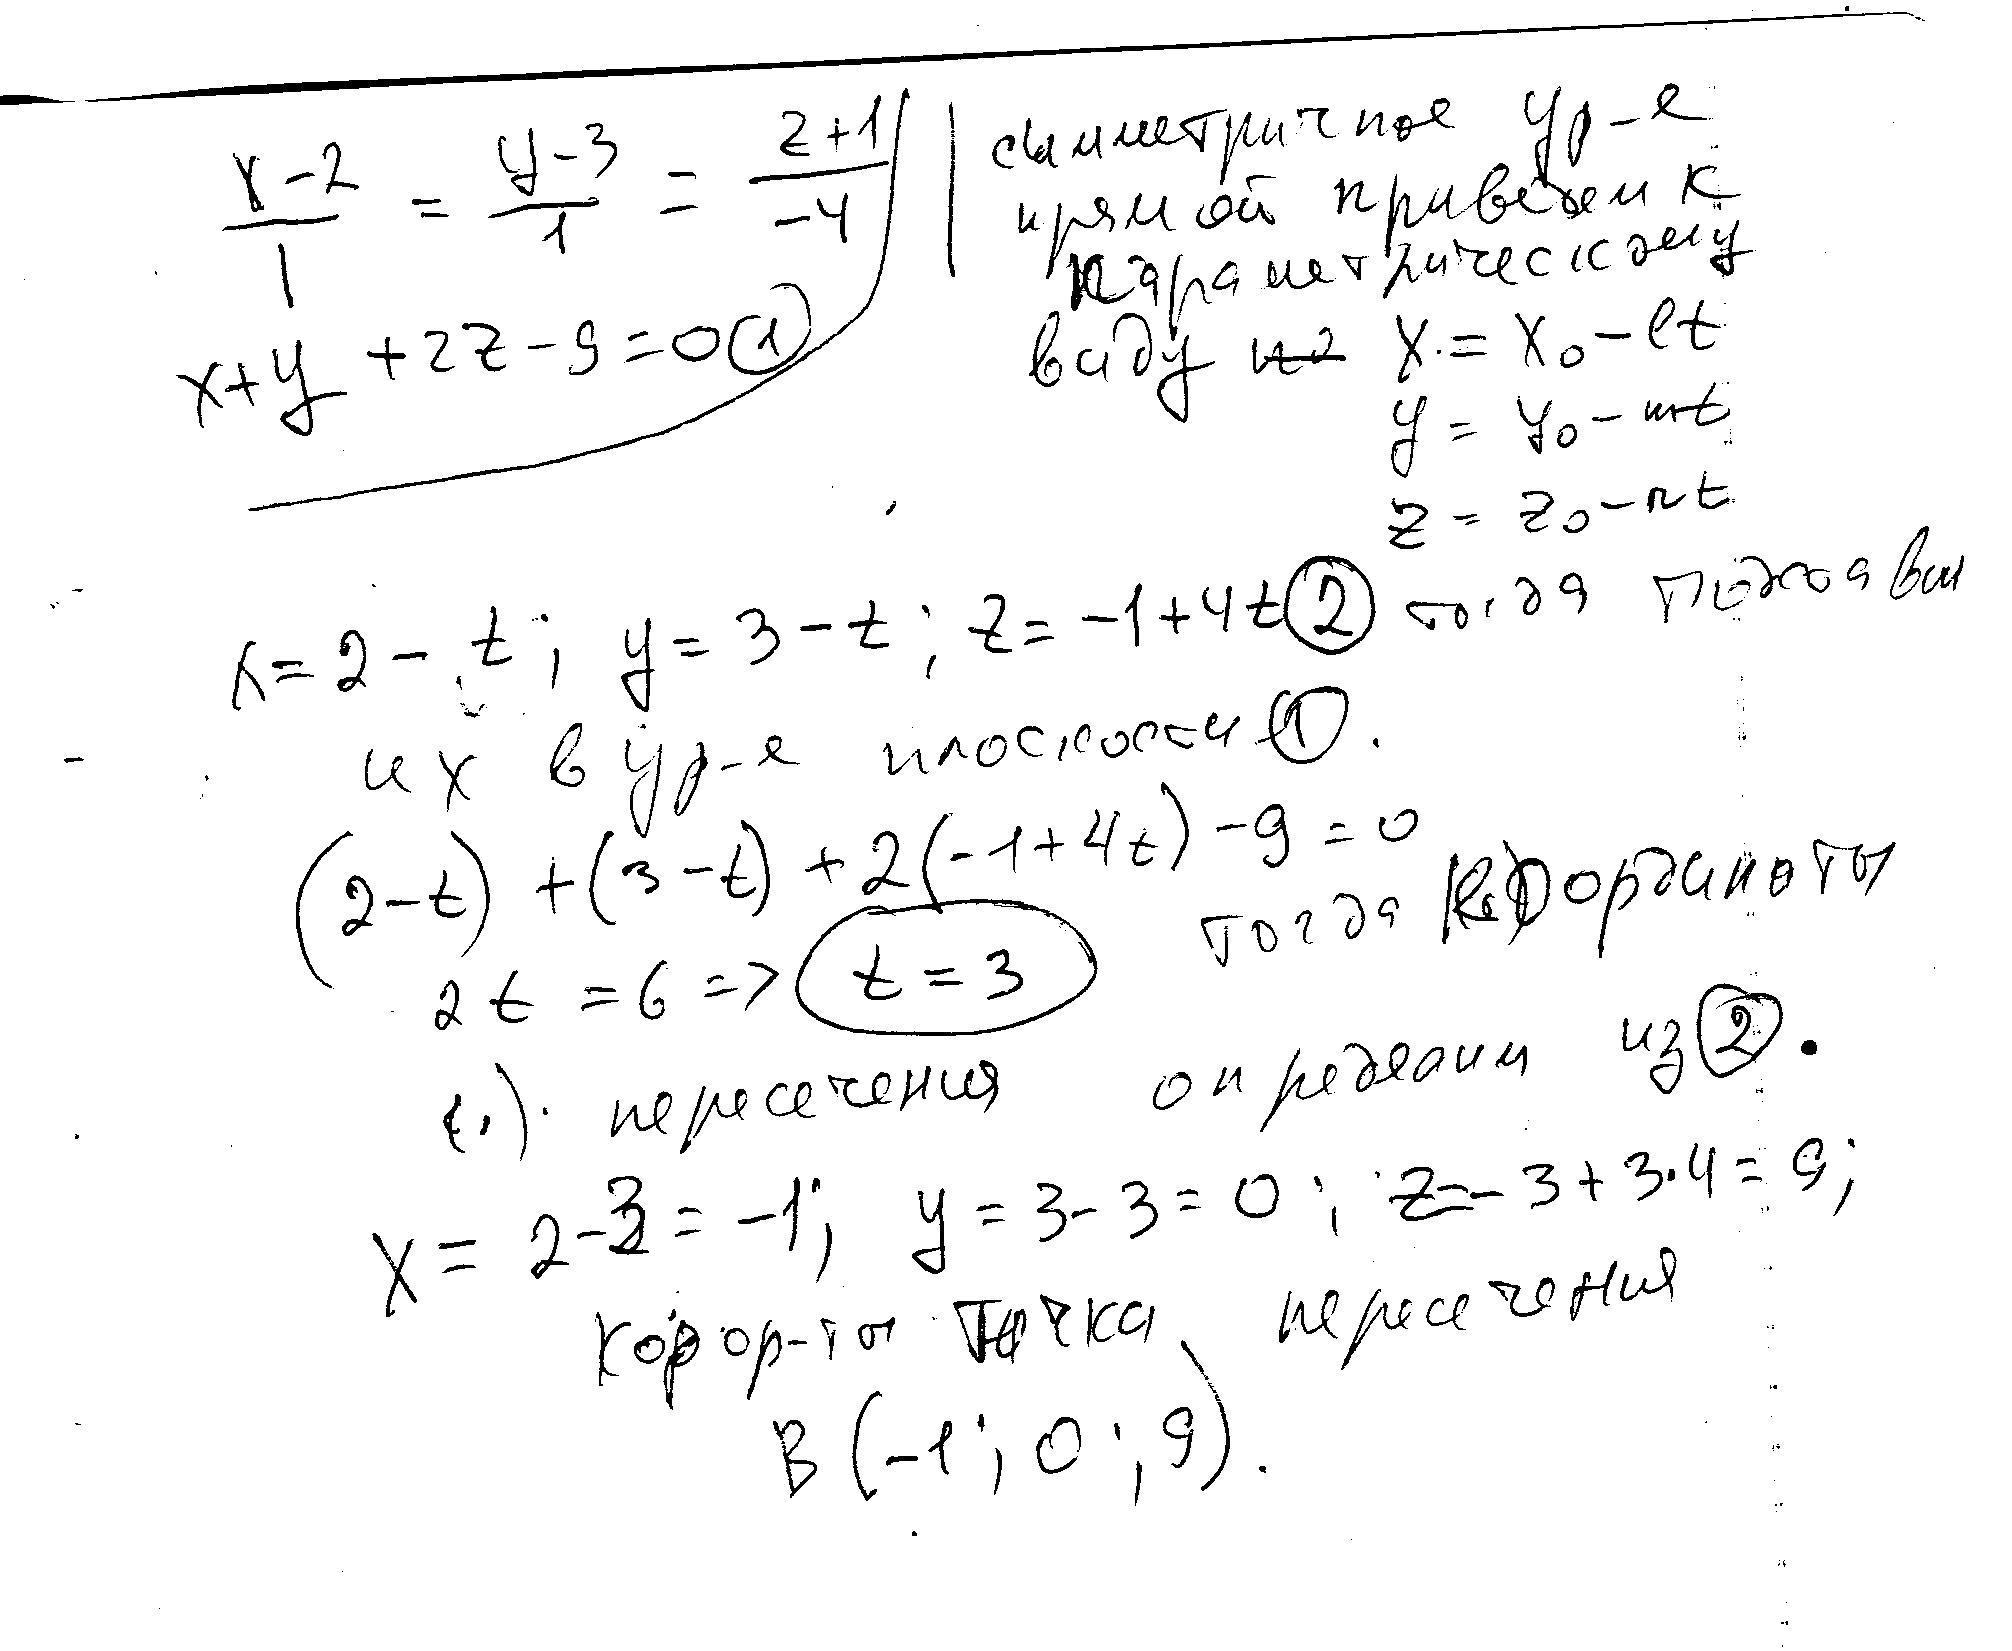 x-2/1 = y-3/1 = z+1/-4
x+y+2z-9=0 (1)
симметричное ур-е
прямой приведем к
параметрическому
виду x = x₀-lt
y = y₀-mt
z = z₀-nt
x=2-t; y=3-t; z=-1+4t (2) тогда подставим
их в ур-е плоскости (1).
(2-t)+(3-t)+2(-1+4t)-9=0
2t=6 => t=3 тогда координаты
(.). пересечения определим из (2).
x=2-3=-1; y=3-3=0; z=-3+3·4=9;
коорор-ты точка пересечения
B(-1; 0; 9).